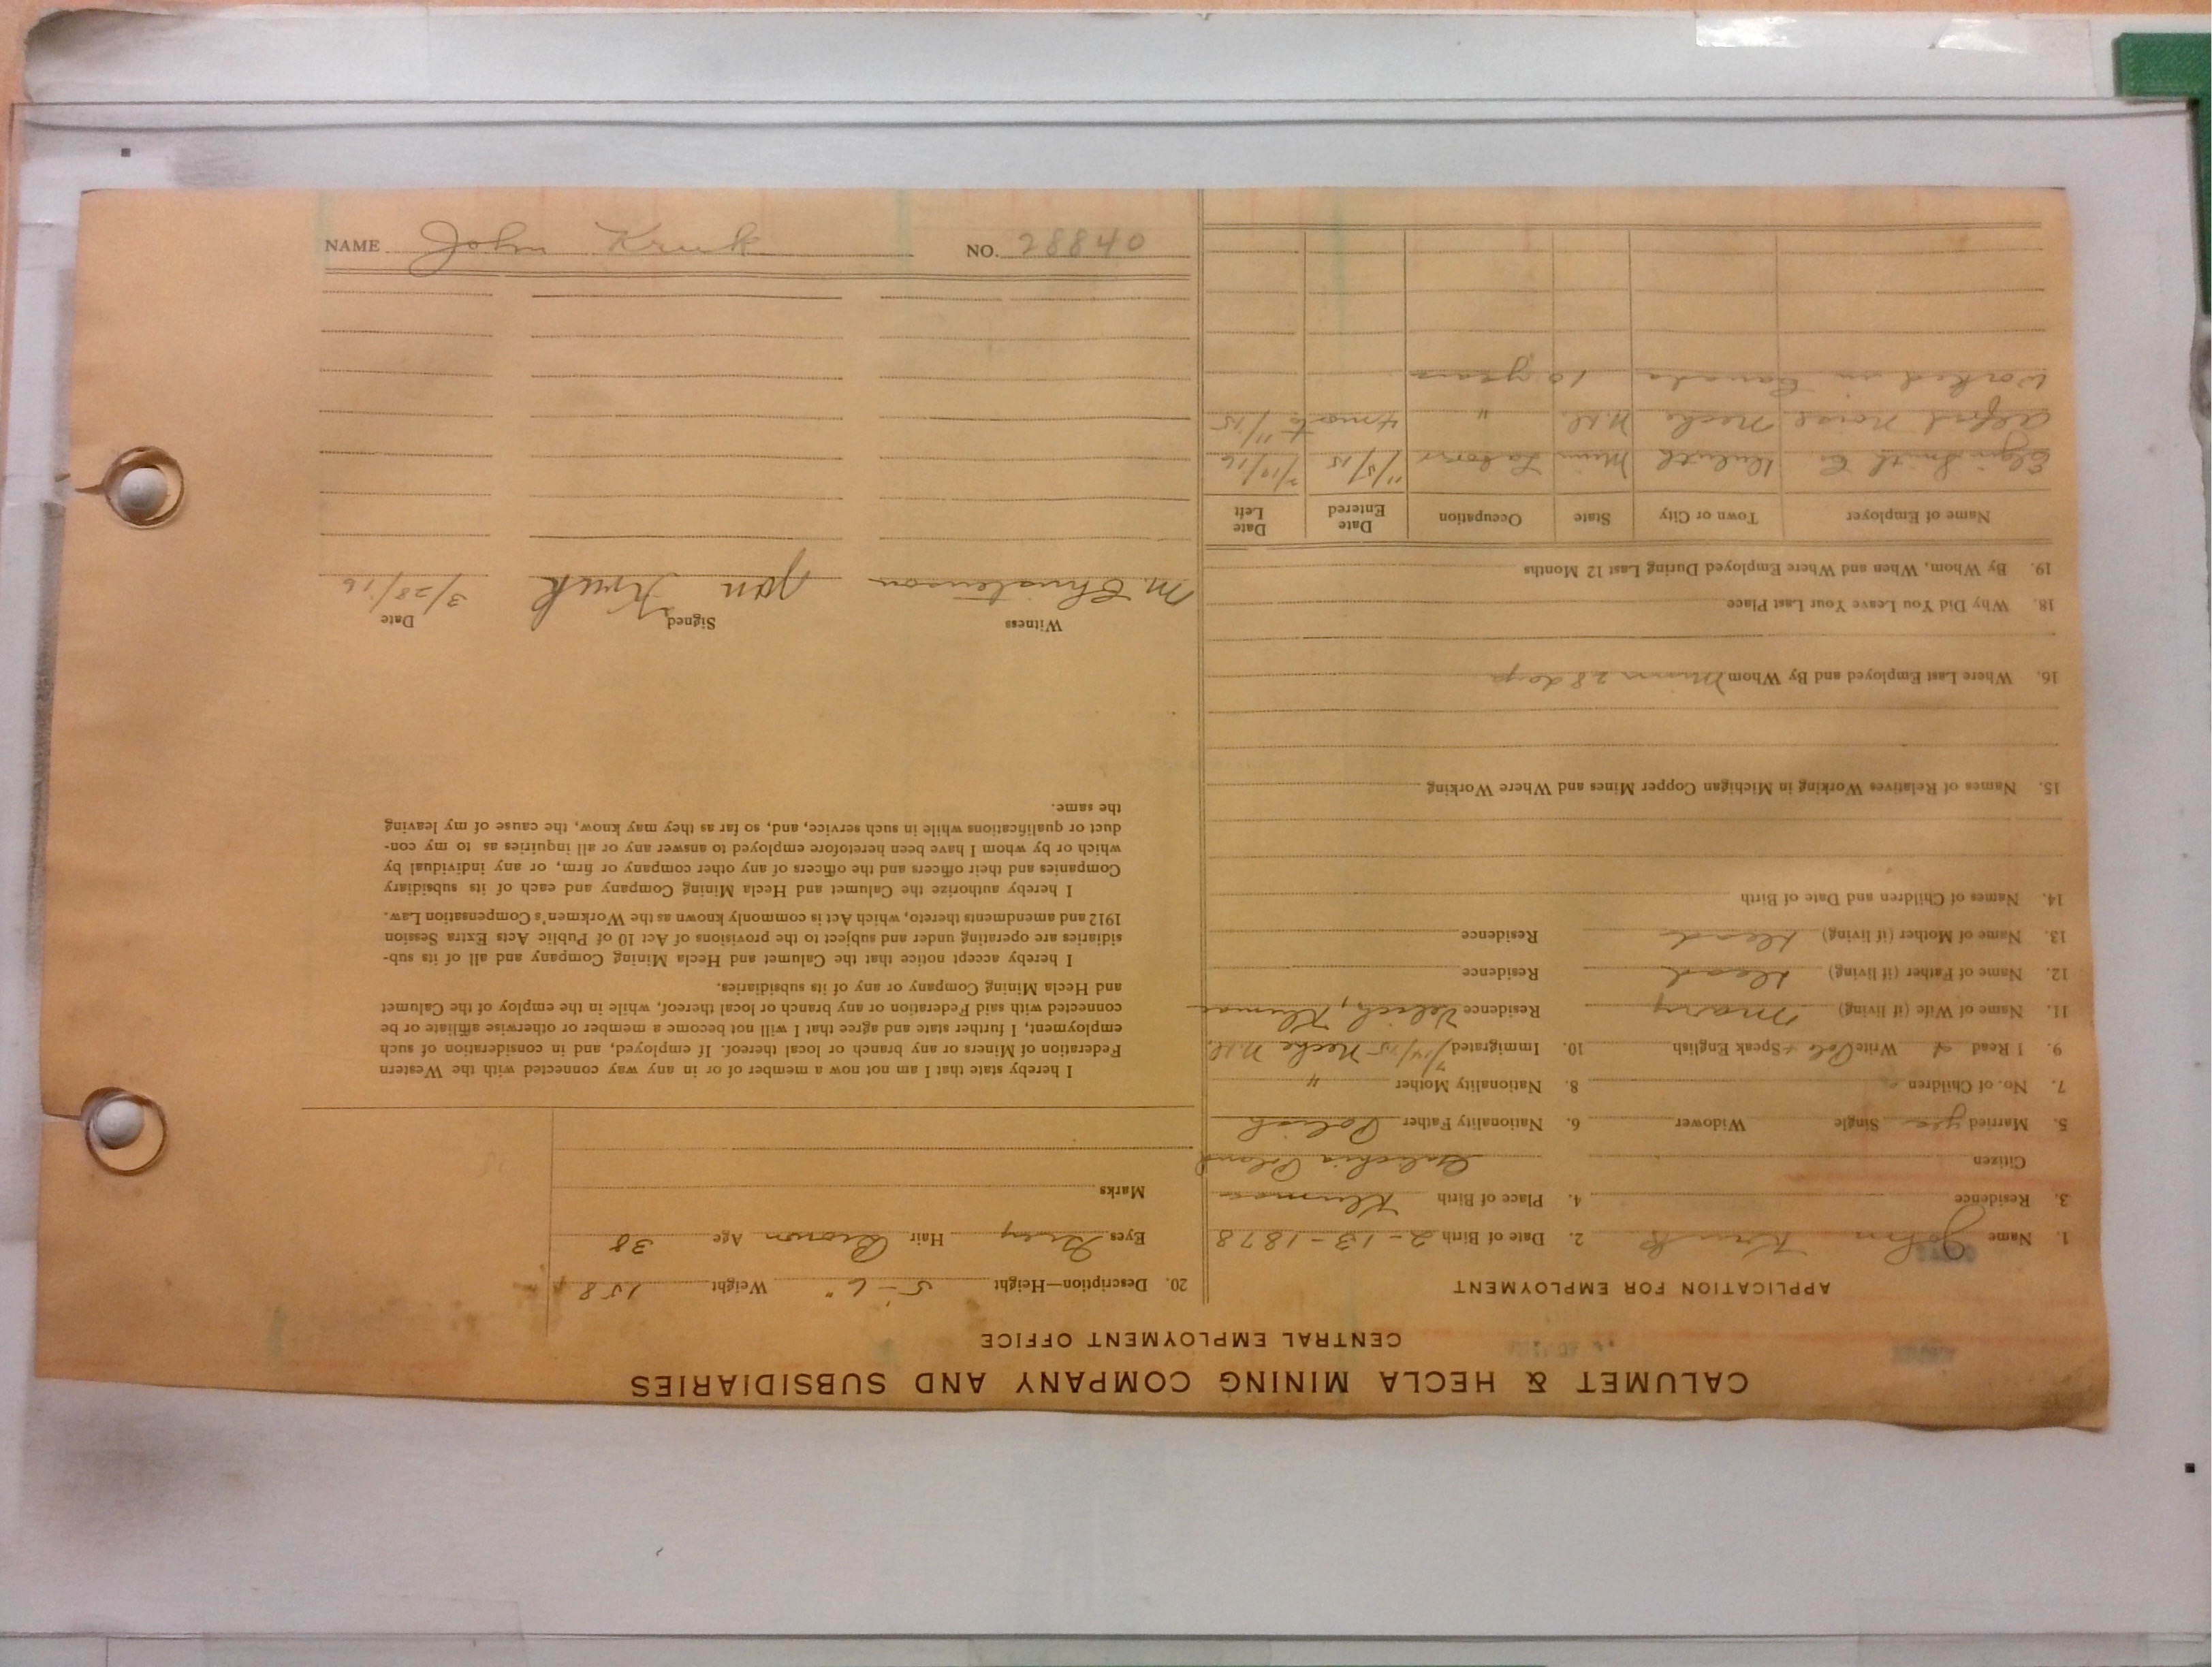 CALUMET & HECLA MINING COMPANY AND SUBSIDIARIES
CENTRAL EMPLOYMENT OFFICE
APPLICATION FOR EMPLOYMENT
1. Name John Kruk 2. Date of Birth 2-13-1878
3. Residence 4. Place of Birth
Citizen Poland
5. Married yes Single Widower 6. Nationality Father Polish
7. No. of Children 8. Nationality Mother "
9. I Read Write Speak English 10. Immigrated 7/14/15 Neche N.D.
11. Name of Wife (if living) Mary Residence
12. Name of Father (if living) Dead Residence
13. Name of Mother (if living) Dead Residence
14. Names of Children and Date of Birth
15. Names of Relatives Working in Michigan Copper Mines and Where Working
16. Where Last Employed and By Whom 28 days
18. Why Did You Leave Your Last Place
19. By Whom, When and Where Employed During Last 12 Months
Name of Employer Town or City State Occupation Date Entered Date Left
Smith Co. Duluth Minn Labor 11/5/15
Alford Neche N.D. " 4 mos to 11/15
Worked in Canada 10 years
20. Description—Height 5'-6" Weight 158
Eyes Grey Hair Brown Age 38
Marks
I hereby state that I am not now a member of or in any way connected with the Western
Federation of Miners or any branch or local thereof. If employed, and in consideration of such
employment, I further state and agree that I will not become a member or otherwise affiliate or be
connected with said Federation or any branch or local thereof, while in the employ of the Calumet
and Hecla Mining Company or any of its subsidiaries.
I hereby accept notice that the Calumet and Hecla Mining Company and all of its sub-
sidiaries are operating under and subject to the provisions of Act 10 of Public Acts Extra Session
1912 and amendments thereto, which Act is commonly known as the Workmen's Compensation Law.
I hereby authorize the Calumet and Hecla Mining Company and each of its subsidiary
Companies and their officers and the officers of any other company or firm, or any individual by
which or by whom I have been heretofore employed to answer any or all inquiries as to my con-
duct or qualifications while in such service, and, so far as they may know, the cause of my leaving
the same.
Witness Signed Date
M. Christenson Jan Kruk 3/28/16
NAME John Kruk NO. 28840